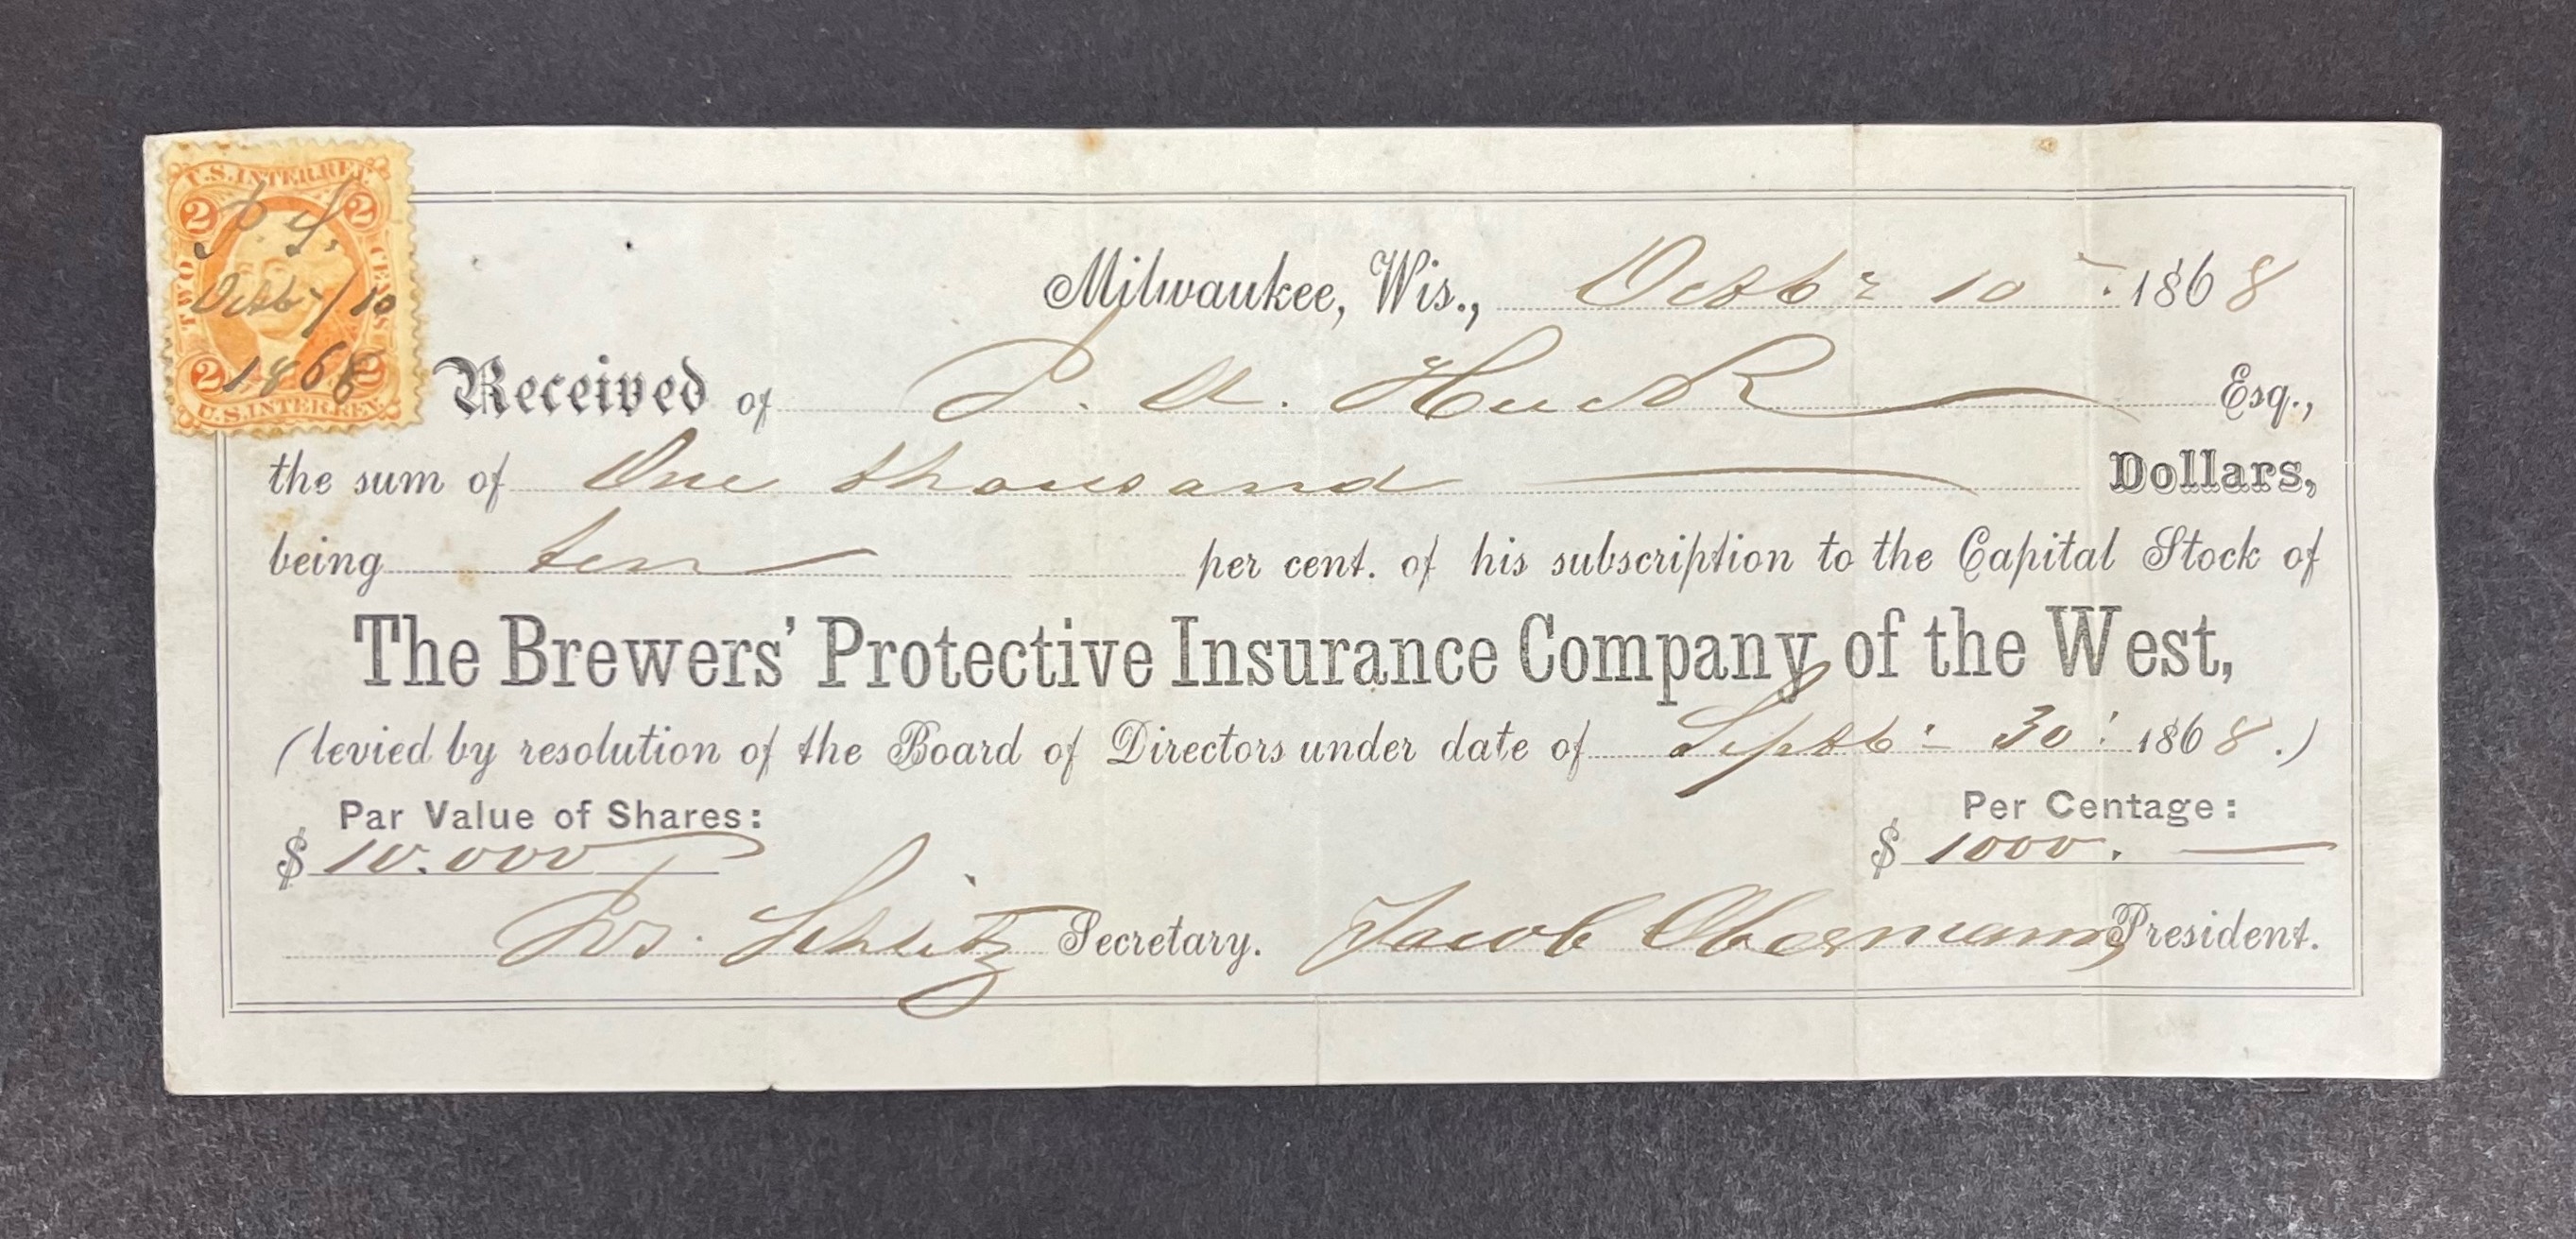 U.S. INTER. REV.
2 2
TWO CENTS
J. S.
Octb. / 10
1868
2 2
U.S. INTER. REV.
Milwaukee, Wis., Octbr 10 1868
Received of J. A. Huck Esq.,
the sum of One thousand Dollars,
being ten per cent. of his subscription to the Capital Stock of
The Brewers' Protective Insurance Company of the West,
(levied by resolution of the Board of Directors under date of Septb. 30. 1868.)
Par Value of Shares: Per Centage:
$ 10.000 $ 1000.
Jos. Schlitz Secretary. Jacob Obermann, President.